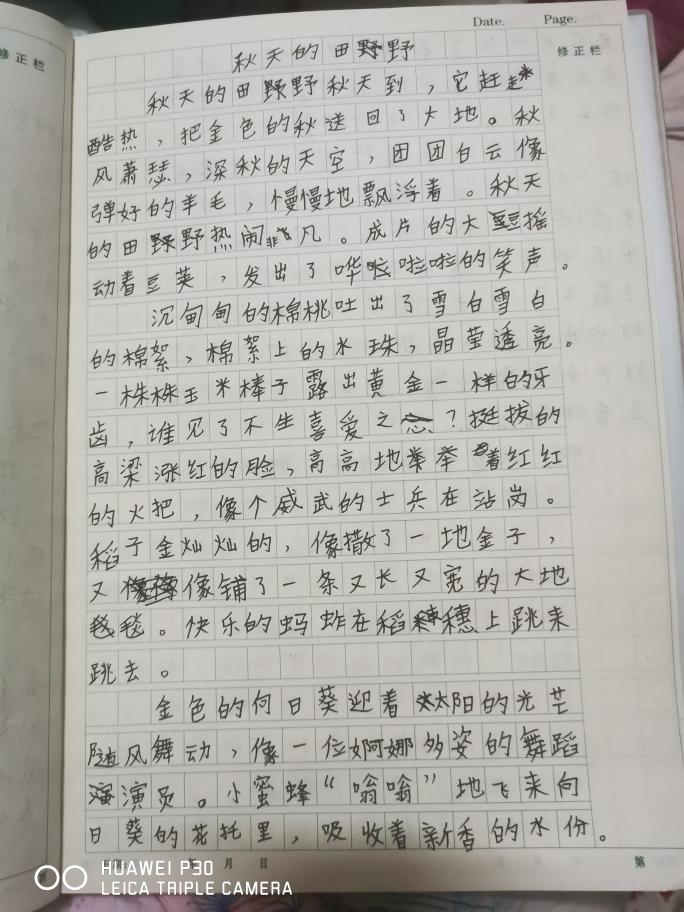 Date. Page.
修正栏
修正栏
秋天的田野
秋天的田野秋天到，它赶走
酷热，把金色的秋送回了大地。秋
风萧瑟，深秋的天空，团团白云像
弹好的羊毛，慢慢地飘浮着。秋天
的田野热闹非凡。成片的大豆摇
动着豆荚，发出了哗啦啦啦的笑声。
沉甸甸的棉桃吐出了雪白雪白
的棉絮，棉絮上的水珠，晶莹透亮。
一株株玉米棒子露出黄金一样的牙
齿，谁见了不生喜爱之念？挺拔的
高梁涨红的脸，高高地举着红红
的火把，像个威武的士兵在站岗。
稻子金灿灿的，像撒了一地金子，
又像铺了一条又长又宽的大地
毯。快乐的蚂蚱在稻穗上跳来
跳去。
金色的向日葵迎着太阳的光芒
随风舞动，像一位婀娜多姿的舞蹈
演员。小蜜蜂“嗡嗡”地飞来向
日葵的花托里，吸收着新香的水份。
年 月 日
第
HUAWEI P30
LEICA TRIPLE CAMERA